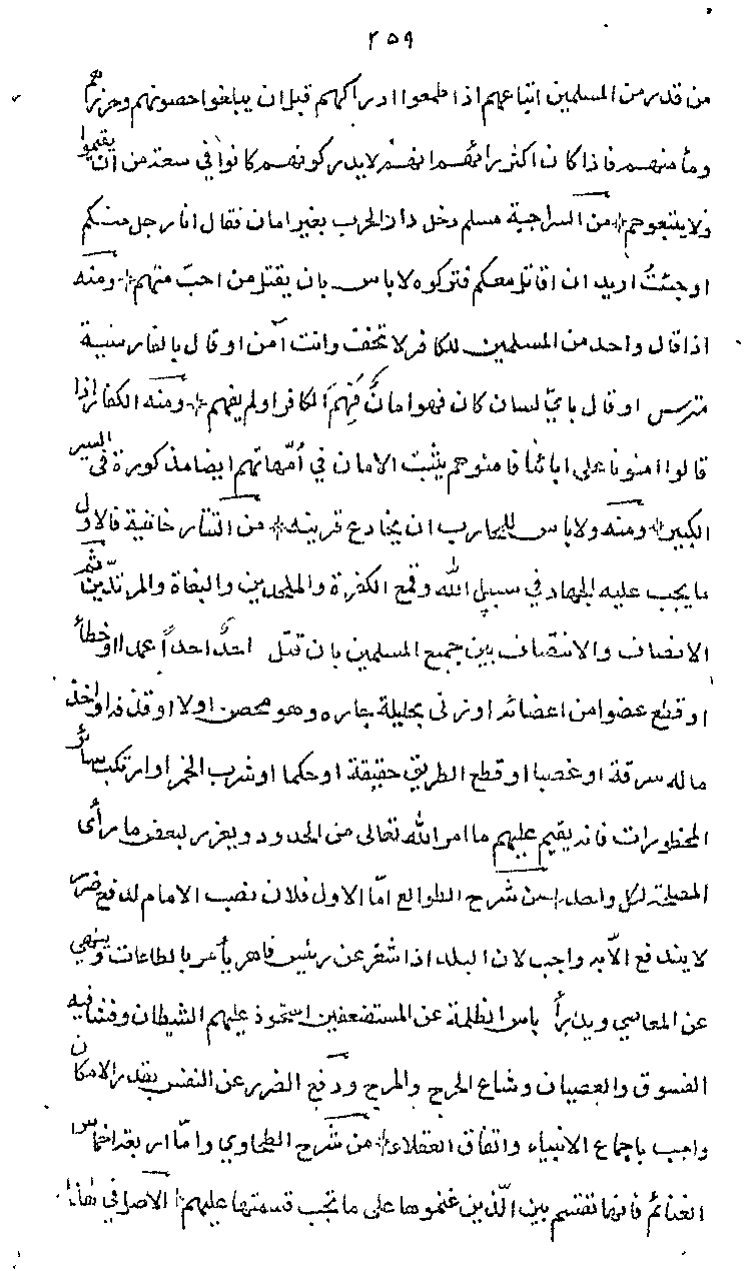 ٢٥٩
من قدر من المسلمين اتباعهم اذا طمعوا ادراكهم قبل ان يبلغوا حصونهم وحرزهم
ومأمنهم فاذا كان اكثر رائهم انهم لا يدركونهم كانوا في سعة من ان يقيموا
ولا يتبعوهم من السراجية مسلم دخل دار الحرب بغير امان فقال انا رجل منكم
او جئتُ اريد ان اقاتل معكم فتركوه لا باس بان يقتل من احبّ منهم ومنه
اذا قال واحد من المسلمين للكافر لا تخف وانت آمن او قال بالفارسية
مترس او قال بايّ لسان كان فهو امانٌ فَهِمَ الكافر اولم يفهم ومنه الكفار اذا
قالوا امنونا على ابائنا فامنوهم يثبت الامان في اُمّهاتهم ايضا مذكورة في السير
الكبير ومنه ولا باس للمحارب ان يخادع قرينه من التتار خانية فالاول
ما يجب عليه الجهاد في سبيل الله وقمع الكفرة والملحدين والبغاة والمرتدّين ثم
الانصاف والانتصاف بين جميع المسلمين بان قتل احدٌ احداً عمدا او خطأ
او قطع عضوا من اعضائه او زنى بحليلة جاره وهو محصن اولا او قذفه او اخذ
ماله سرقة او غصبا او قطع الطريق حقيقة او حكما او شرب الخمر او ارتكب سائر
المحظورات فانه يقيم عليهم ما امر الله تعالى من الحدود ويعزر لبعض ما رأى
المصلحة لكل واحد من شرح الطوالع امّا الاول فلان نصب الامام لدفع ضرر
لا يندفع الّا به واجب لان البلد اذا شغر عن رئيس قاهر يأمر بالطاعات وينهى
عن المعاصي ويدرأ باس الظلمة عن المستضعفين استحوذ عليهم الشيطان وفشا فيه
الفسوق والعصيان وشاع الهرج والمرج ودفع الضرر عن النفس بقدر الامكان
واجب باجماع الانبياء واتفاق العقلاء من شرح الطحاوي وامّا اربعة اخماس
الغنائم فانها تقسم بين الّذين غنموها على ما تجب قسمتها عليهم الاصل في هذا